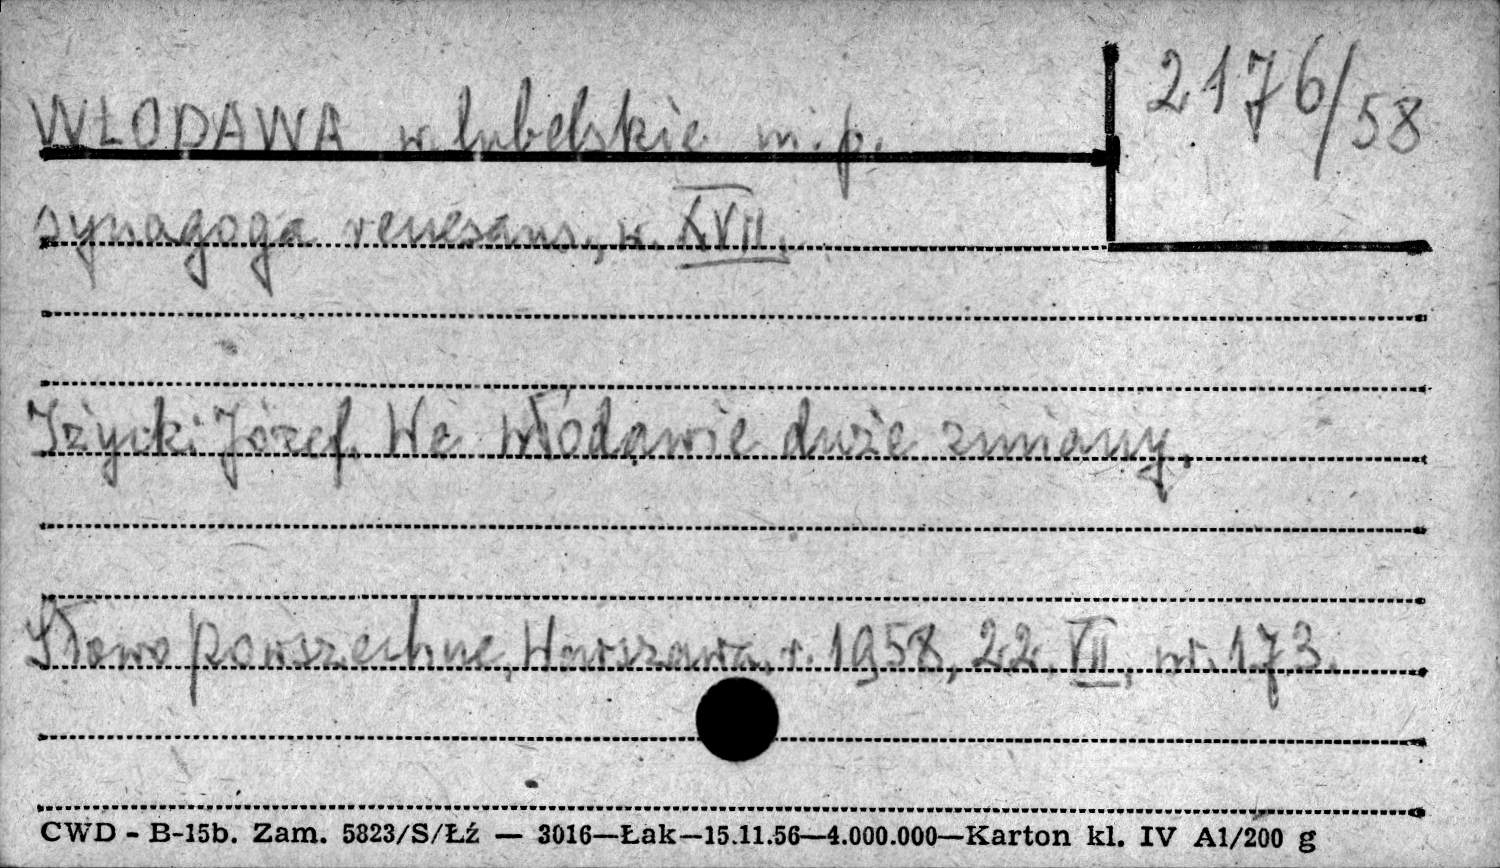 WŁODAWA w. lubelskie m. p.
2176/58
synagoga renesans., w. XVII.
Iżycki Józef. We Włodawie duże zmiany.
Słowo powszechne, Warszawa, r. 1958, 22. VII, nr. 173.
CWD - B-15b. Zam. 5823/S/Łź — 3016—Łak—15.11.56—4.000.000—Karton kl. IV A1/200 g